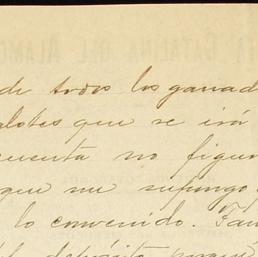 CATALINA DEL ALAMO
de todos los ganad
alotes que se irá
cuenta no figur
que me supongo
lo convenido. Tam
el depósito porque